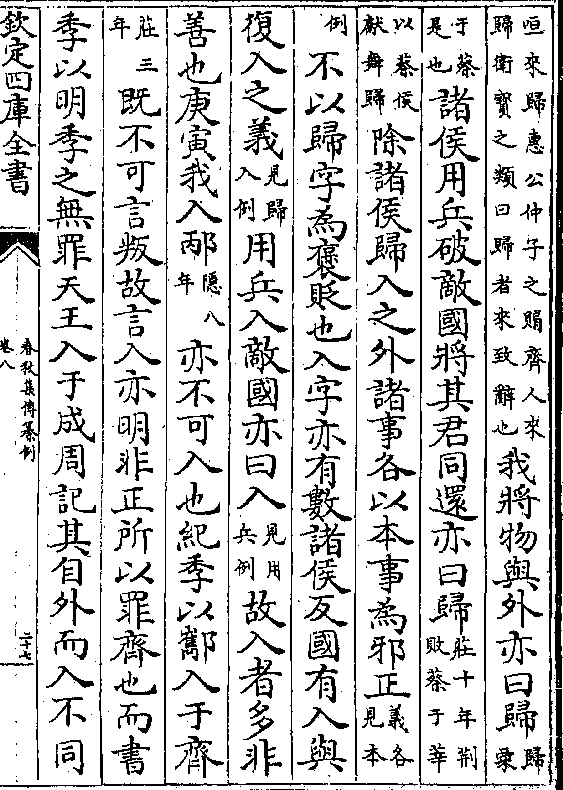 咺來歸惠公仲子之賵齊人來歸衛寳之類曰歸者來致辭也我將物與外亦曰歸歸粟
于蔡是也諸侯用兵破敵國將其君同還亦曰歸莊十年荆敗蔡于莘
以蔡侯獻舞歸除諸侯歸入之外諸事各以本事為邪正義各見本
例不以歸字為褒貶也入字亦有數諸侯反國有入與
復入之義見歸入例用兵入敵國亦曰入見用兵例故入者多非
善也庚寅我入邴隠八年亦不可入也紀季以酅入于齊
莊三年既不可言叛故言入亦明非正所以罪齊也而書
季以明季之無罪天王入于成周記其自外而入不同
欽定四庫全書
春秋集傳纂例
卷八
二十七